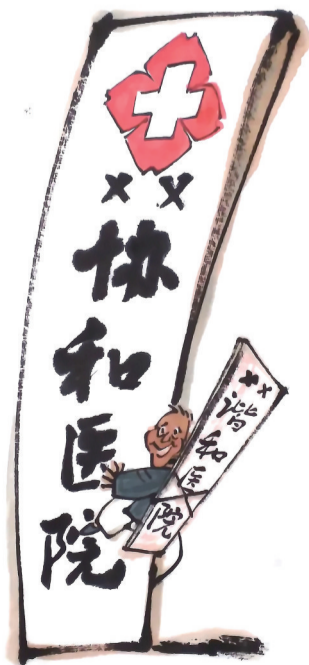 ××
协和医院
××谐和医院